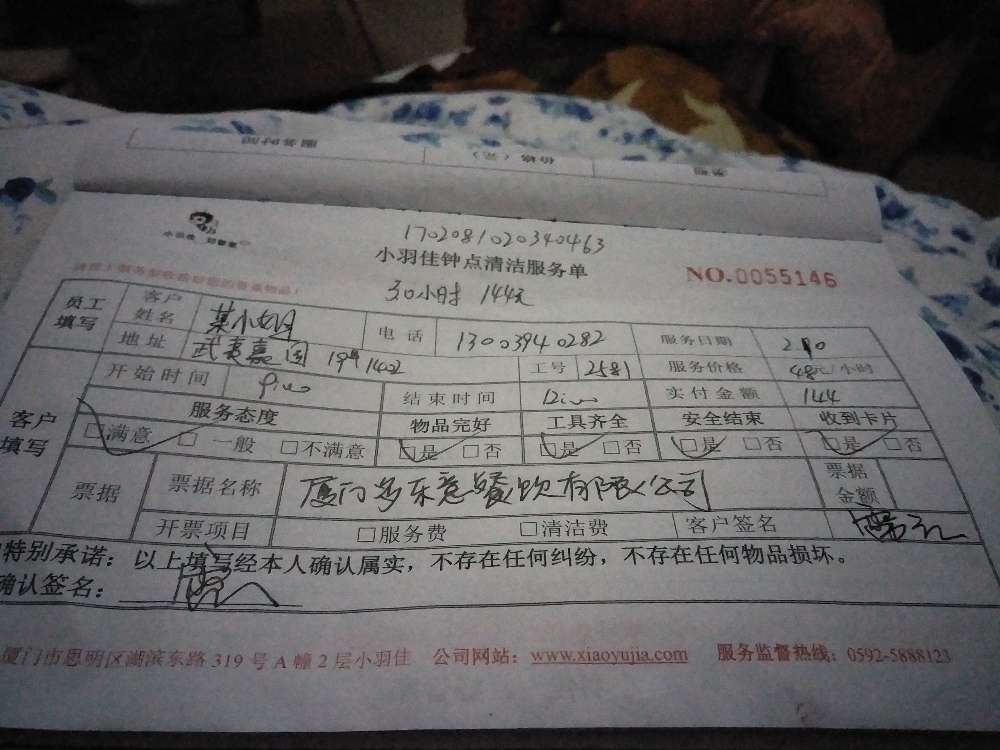 服务时间 价格（元）
小羽佳
170208102034 0463
小羽佳钟点清洁服务单
NO.0055146
3小时 144元
员工填写 客户姓名 电话 13003940282 服务日期
地址 武夷嘉园 1402 工号 2581 服务价格 48元/小时
开始时间 结束时间 实付金额 144
客户填写 服务态度 物品完好 工具齐全 安全结束 收到卡片
□满意 □一般 □不满意 □是 □否 □是 □否 □是 □否 □是 □否
票据 票据名称 厦门多乐意餐饮有限公司 票据金额
开票项目 □服务费 □清洁费 客户签名
特别承诺：以上填写经本人确认属实，不存在任何纠纷，不存在任何物品损坏。
确认签名：
厦门市思明区湖滨东路 319 号 A 幢 2 层小羽佳 公司网站：www.xiaoyujia.com 服务监督热线：0592-5888123